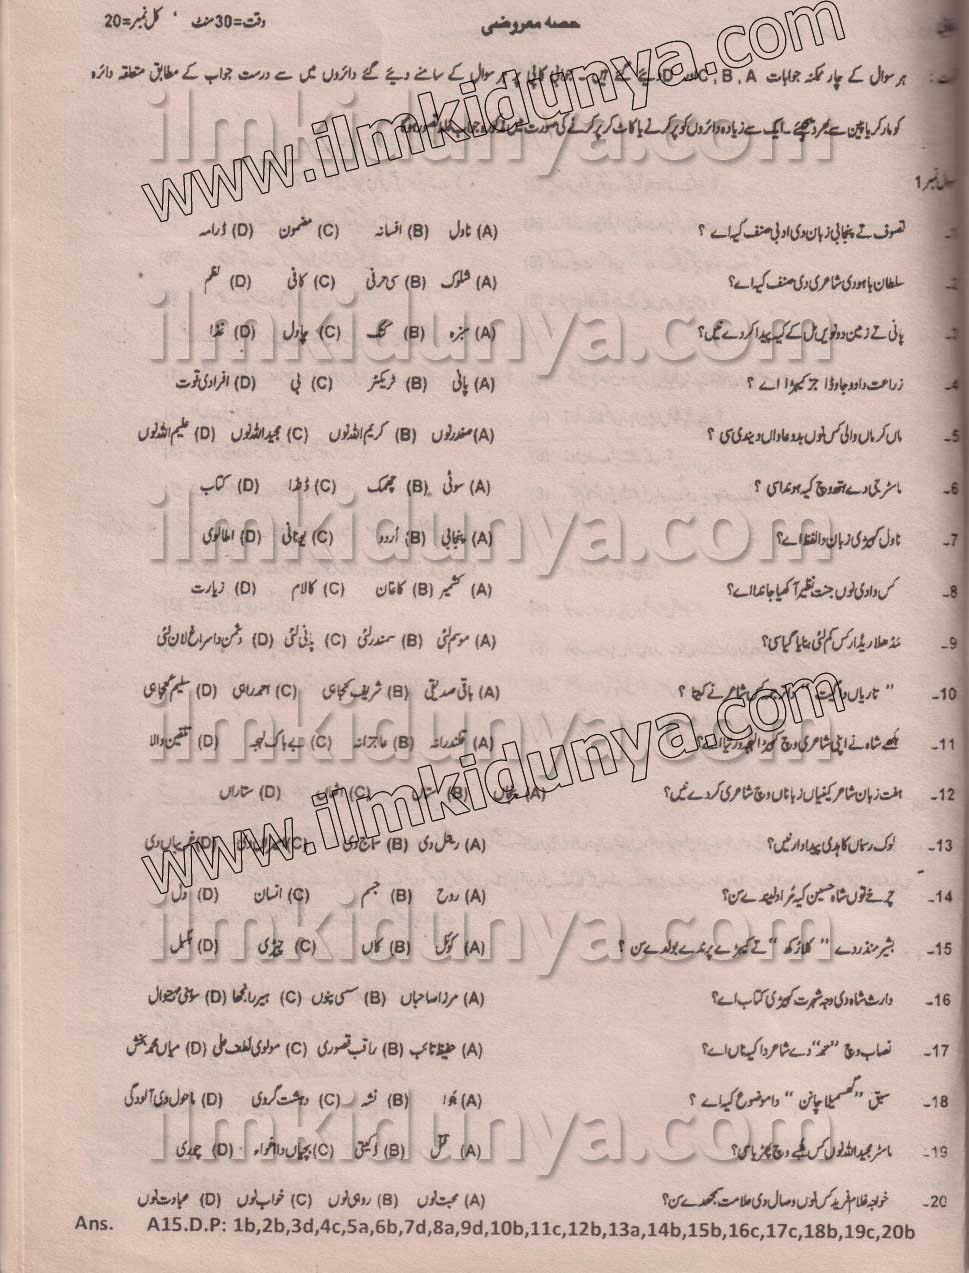 حصہ معروضی وقت=30منٹ ' کل نمبر=20
ہر سوال کے چار ممکنہ جوابات C, B, A اور D دیئے گئے ہیں۔ جوابی کاپی پر ہر سوال کے سامنے دیئے گئے دائروں میں سے درست جواب کے مطابق متعلقہ دائرہ
کو مارکر یا پین سے بھر دیجئے۔ ایک سے زیادہ دائروں کو پر کرنے یا کاٹ کر پر کرنے کی صورت میں مذکورہ جواب غلط تصور ہوگا۔
سوال نمبر 1
1۔ تصوف تے پنجابی زبان دی ادبی صنف کیہ اے ؟ (A) ناول (B) افسانہ (C) مضمون (D) ڈرامہ
2۔ سلطان باہو دی شاعری دی صنف کیہ اے؟ (A) شلوک (B) سی حرفی (C) کافی (D) نظم
3۔ پانی تے زمین دونویں مل کے کیہ پیدا کردے نیں؟ (A) سبزہ (B) کنک (C) چاول (D) غذا
4۔ زراعت دا ودھاوڈا جز کیہڑا اے ؟ (A) پانی (B) ٹریکٹر (C) بی (D) افرادی قوت
5۔ ماں کرماں والی کس نوں بددعاواں دیندی سی ؟ (A) صفدر نوں (B) کریم اللہ نوں (C) مجید اللہ نوں (D) علیم اللہ نوں
6۔ ماسٹر جی دے ہتھ وچ کیہ ہوندا سی ؟ (A) سوٹی (B) چھمک (C) ڈنڈا (D) کتاب
7۔ ناول کیہڑی زبان دا لفظ اے؟ (A) پنجابی (B) اُردو (C) یونانی (D) اطالوی
8۔ کس وادی نوں جنت نظیر آکھیا جاندا اے؟ (A) کشمیر (B) کاغان (C) کالام (D) زیارت
9۔ مڈھلا ریڈار کس کم لئی بنایا گیا سی؟ (A) موسم لئی (B) سمندر لئی (C) پانی لئی (D) دشمن دا سراغ لان لئی
10۔ " تاریاں دا گیت " دا ترجمہ کس شاعر نے کیتا ؟ (A) باقی صدیقی (B) شریف کنجاہی (C) احمد راہی (D) سلیم کنجاہی
11۔ بلھے شاہ نے اپنی شاعری وچ کیہڑا لہجہ ورتیا اے؟ (A) قلندرانہ (B) عاجزانہ (C) بے باک لہجہ (D) تلقین والا
12۔ ہفت زبان شاعر کینیاں زباناں وچ شاعری کردے نیں؟ (A) پنجاں (B) ستاں (C) اٹھاں (D) ستاراں
13۔ لوک رسماں کاہدی پیداوار نیں؟ (A) رہتل دی (B) سماج دی (C) امیراں دی (D) غریباں دی
14۔ چرخے توں شاہ حسین کیہ مُراد لیندے سن؟ (A) روح (B) جسم (C) انسان (D) دل
15۔ بشیر منذر دے " کلا رُکھ " تے کیہڑے پرندے بولدے سن ؟ (A) کوئل (B) کاں (C) چڑی (D) بلبل
16۔ وارث شاہ دی وجہ شہرت کیہڑی کتاب اے؟ (A) مرزا صاحباں (B) سسی پنوں (C) ہیر رانجھا (D) سوہنی مہینوال
17۔ نصاب وچ "حمد" دے شاعر دا کیہ ناں اے؟ (A) حفیظ تائب (B) راقب قصوری (C) مولوی لطف علی (D) میاں محمد بخش
18۔ سبق " گھسمیلا چانن " دا موضوع کیہ اے ؟ (A) جُوا (B) نشہ (C) دہشت گردی (D) ماحول دی آلودگی
19۔ ماسٹر مجید اللہ نوں کس شبے وچ پھڑیا سی؟ (A) قتل (B) ڈکیتی (C) بچیاں دا اغواء (D) چوری
20۔ خواجہ غلام فرید کس نوں وصال دی علامت سمجھدے سن؟ (A) محبت نوں (B) روہی نوں (C) خواب نوں (D) عبادت نوں
Ans. A15.D.P: 1b,2b,3d,4c,5a,6b,7d,8a,9d,10b,11c,12b,13a,14b,15b,16c,17c,18b,19c,20b
www.ilmkidunya.com
www.ilmkidunya.com
ilmkidunya.com
ilmkidunya.com
ilmkidunya.com
ilmkidunya.com
ilmkidunya.com
ilmkidunya.com